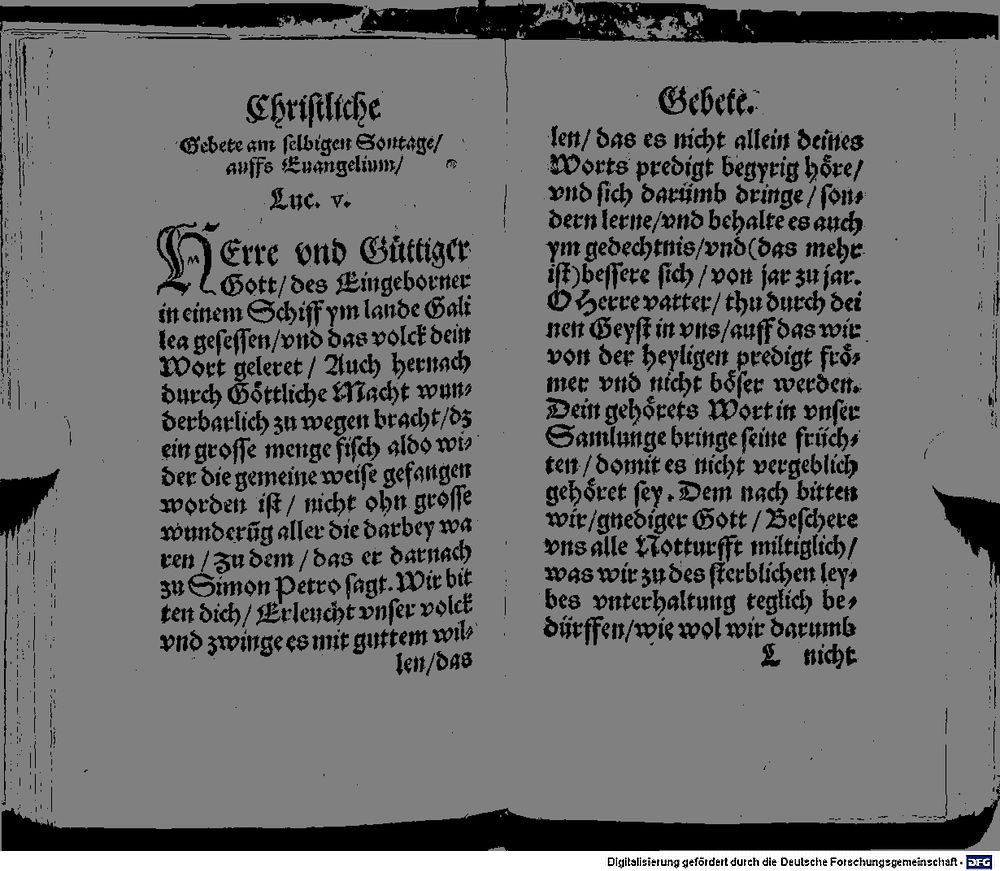 Christliche
Gebete am selbigen Sontage/
auffs Euangelium/
Luc. v.
HErre vnd Güttiger
Gott/ des Eingeborner
in einem Schiff ym lande Gali
lea gesessen/vnd das volck dein
Wort geleret / Auch hernach
durch Göttliche Macht wun⸗
derbarlich zu wegen bracht/dz
ein grosse menge fisch aldo wi⸗
der die gemeine weise gefangen
worden ist / nicht ohn grosse
wunderũg aller die darbey wa
ren / Zu dem / das er darnach
zu Simon Petro sagt. Wir bit
ten dich/ Erleucht vnser volck
vnd zwinge es mit guttem wil⸗
len/das
Gebete.
len/ das es nicht allein deines
Worts predigt begyrig höre/
vnd sich darümb dringe / son⸗
dern lerne/vnd behalte es auch
ym gedechtnis/vnd (das mehr
ist) bessere sich / von jar zu jar.
O Herre vatter/ thu durch dei
nen Geyst in vns/auff das wir
von der heyligen predigt frö⸗
mer vnd nicht böser werden.
Dein gehörets Wort in vnser
Samlunge bringe seine früch⸗
ten / domit es nicht vergeblich
gehöret sey. Dem nach bitten
wir/gnediger Gott / Beschere
vns alle Notturfft miltiglich/
was wir zu des sterblichen ley⸗
bes vnterhaltung teglich be⸗
dürffen/wie wol wir darumb
L nicht
Digitalisierung gefördert durch die Deutsche Forschungsgemeinschaft - DFG